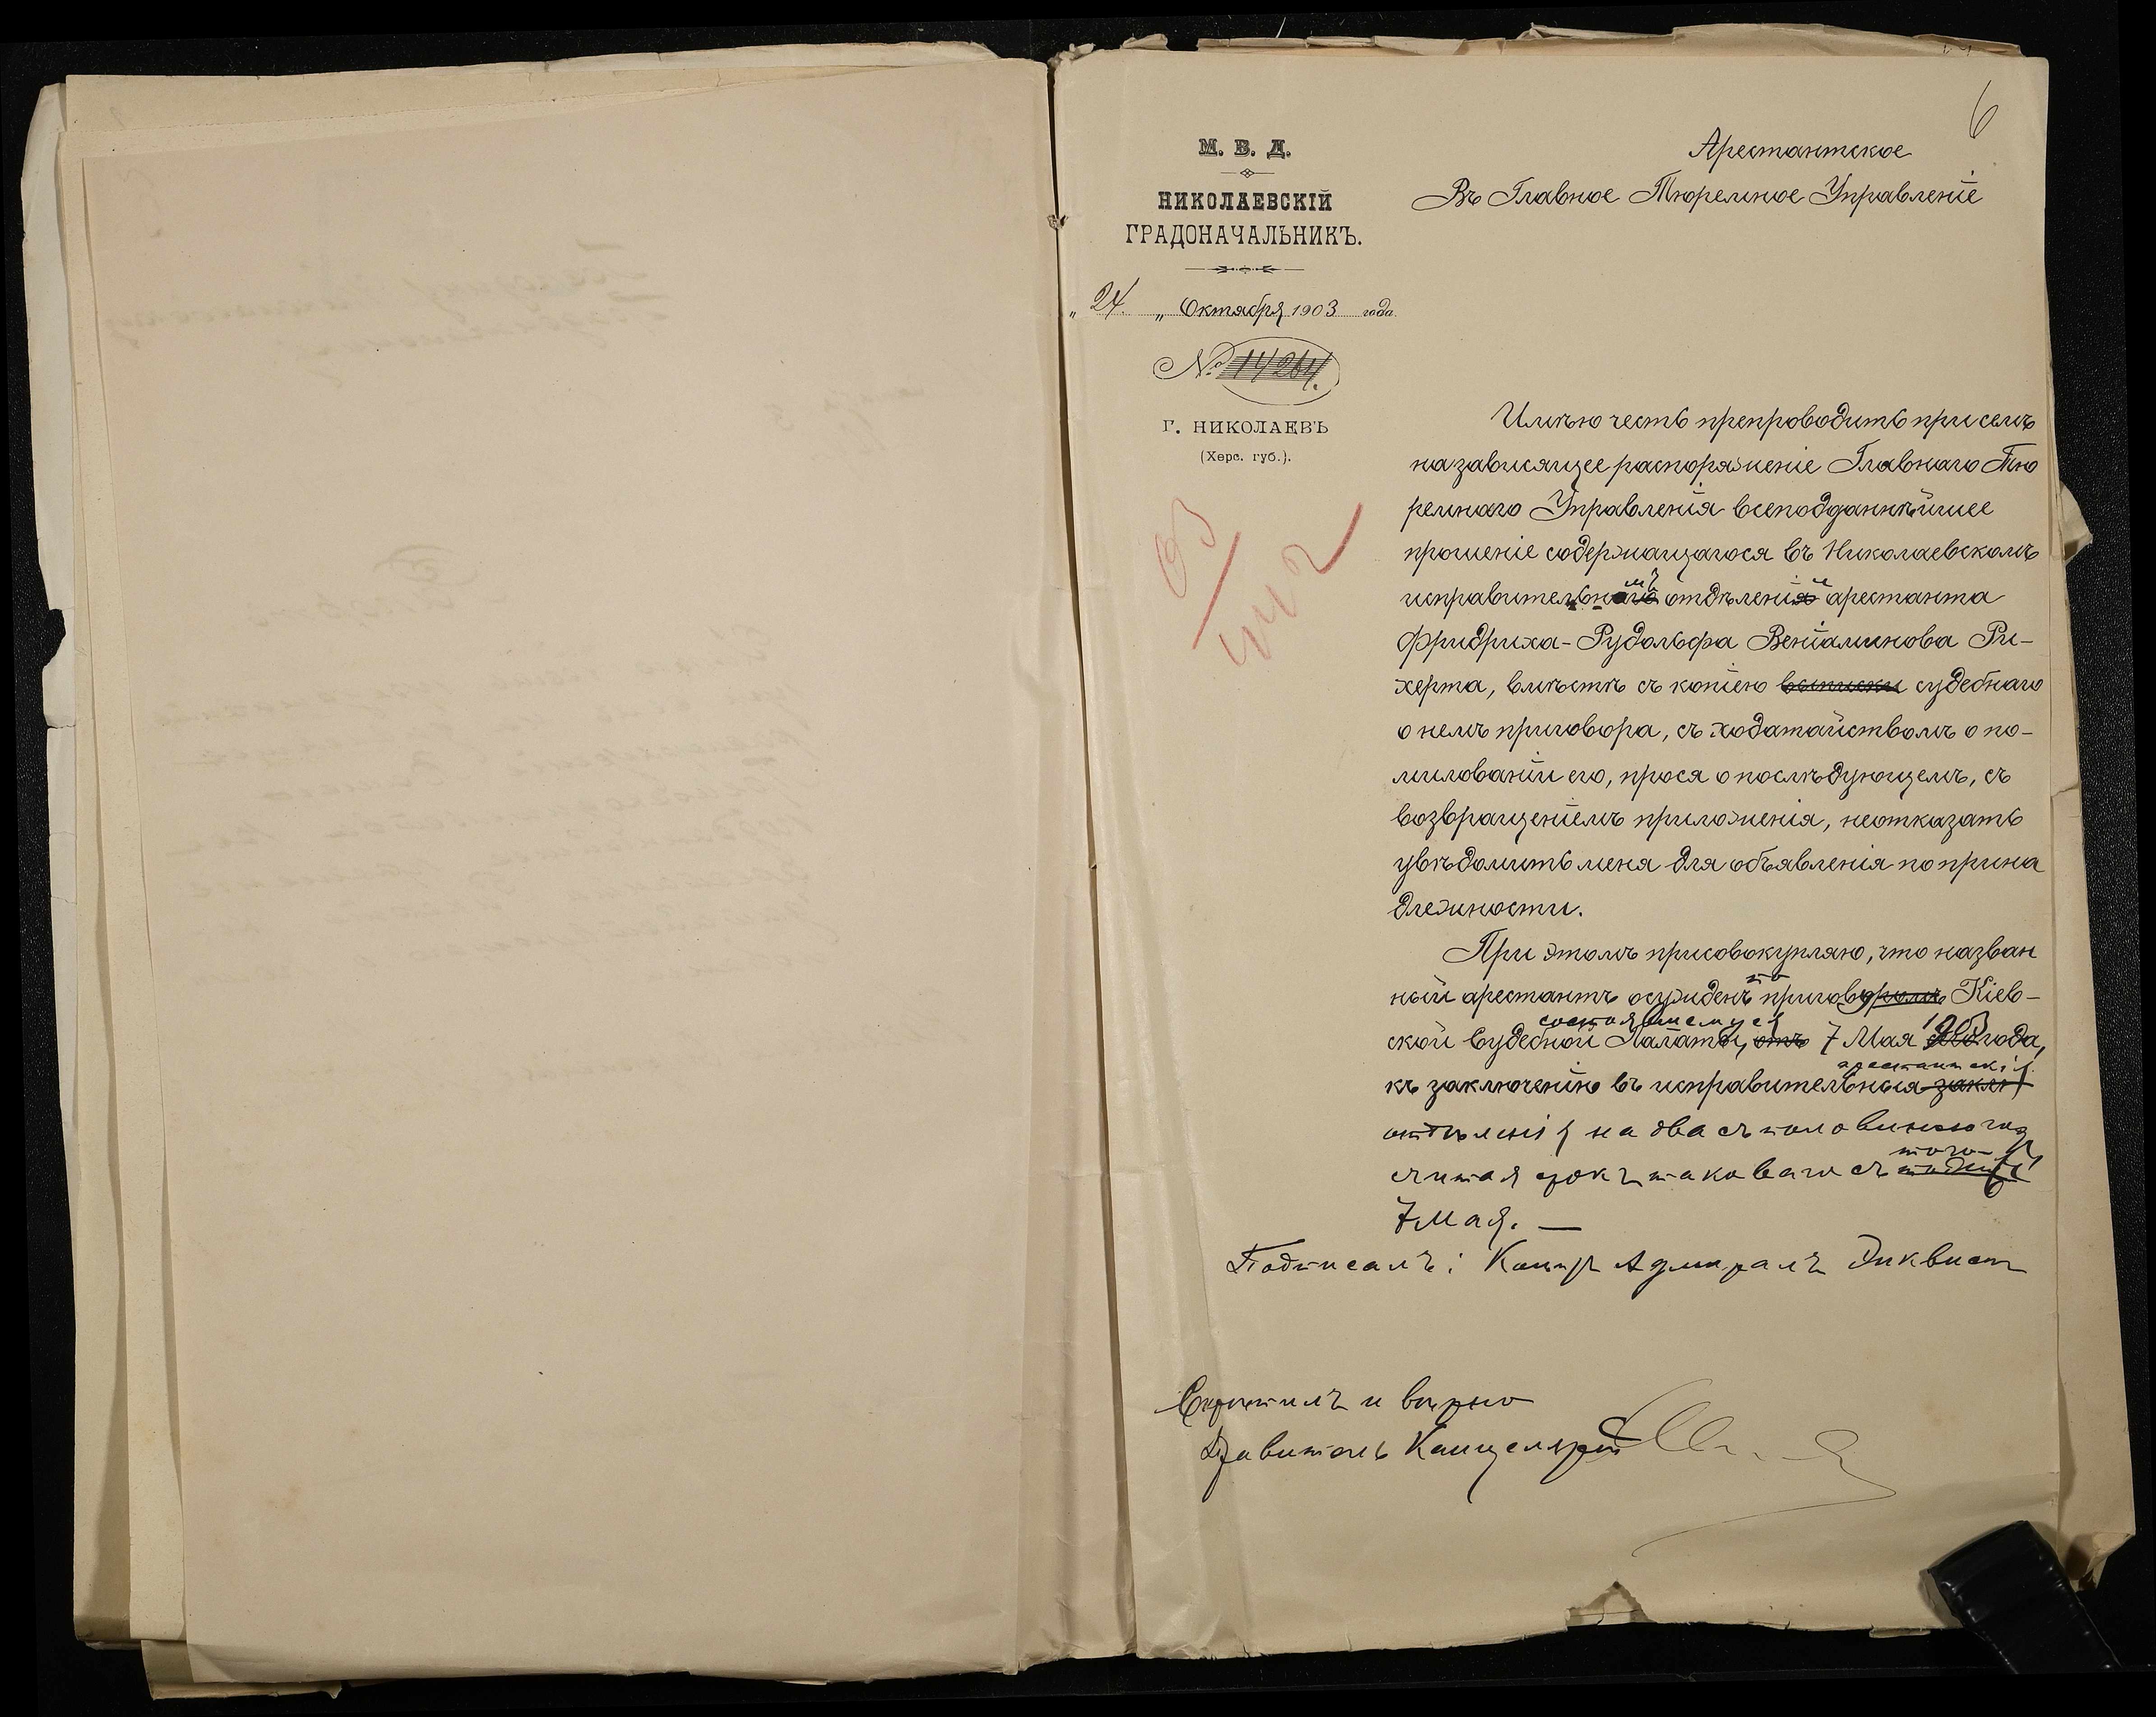 6
М. В. Д.
НИКОЛАЕВСКІЙ
ГРАДОНАЧАЛЬНИКЪ.
„ 24. „ Октября 1903 года.
№ 14264.
Г. НИКОЛАЕВЪ
(Херс. губ.).
Арестантское
Въ Главное Тюремное Управленіе
Имѣю честь препроводить при семъ
на зависящее распоряженіе Главнаго Тю
ремнаго Управленія всеподданнѣйшее
прошеніе содержащагося въ Николаевскомъ
исправительномъ отдѣленіи арестанта
Фридриха-Рудольфа Веніаминова Ри-
херта, вмѣстѣ съ копіею выписки судебнаго
о немъ приговора, съ ходатайствомъ о по-
милованіи его, прося о послѣдующемъ, съ
возвращеніемъ приложенія, неотказать
увѣдомить меня для объявленія по прина
длежности.
При этомъ присовокупляю, что назван
ный арестантъ осужденъ по приговоромъ Кіев-
состоявшемуся
ской Судебной Палаты, отъ 7 Мая 1903 года,
арестантскія
къ заключенію въ исправительныя заклю
отдѣленія на два съ половиною года
того-же
считая срокъ таковаго съ
7 Мая. —
Подписалъ: Контръ Адмиралъ Энквистъ
Скрѣпилъ и вѣрно
Правитель Канцеляріи